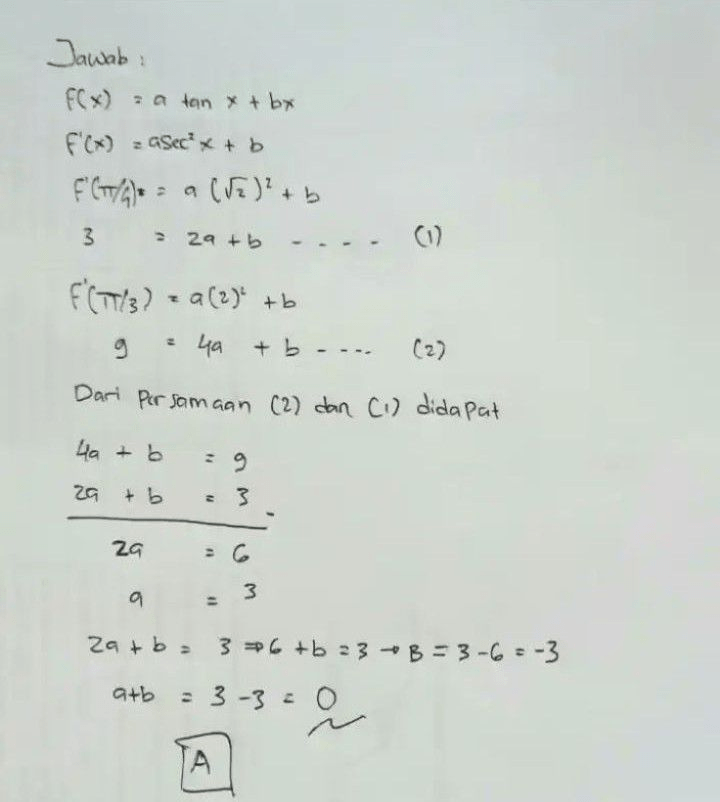 Jawab :
F(x) = a tan x + bx
F'(x) = a Sec² x + b
F'(π/4) = a (√2)² + b
3 = 2a + b - - - - (1)
F'(π/3) = a(2)² + b
9 = 4a + b - - - - (2)
Dari Persamaan (2) dan (1) didapat
4a + b = 9
2a + b = 3 -
2a = 6
a = 3
2a + b = 3 ⇒ 6 + b = 3 → B = 3 - 6 = -3
a+b = 3 - 3 = 0
A